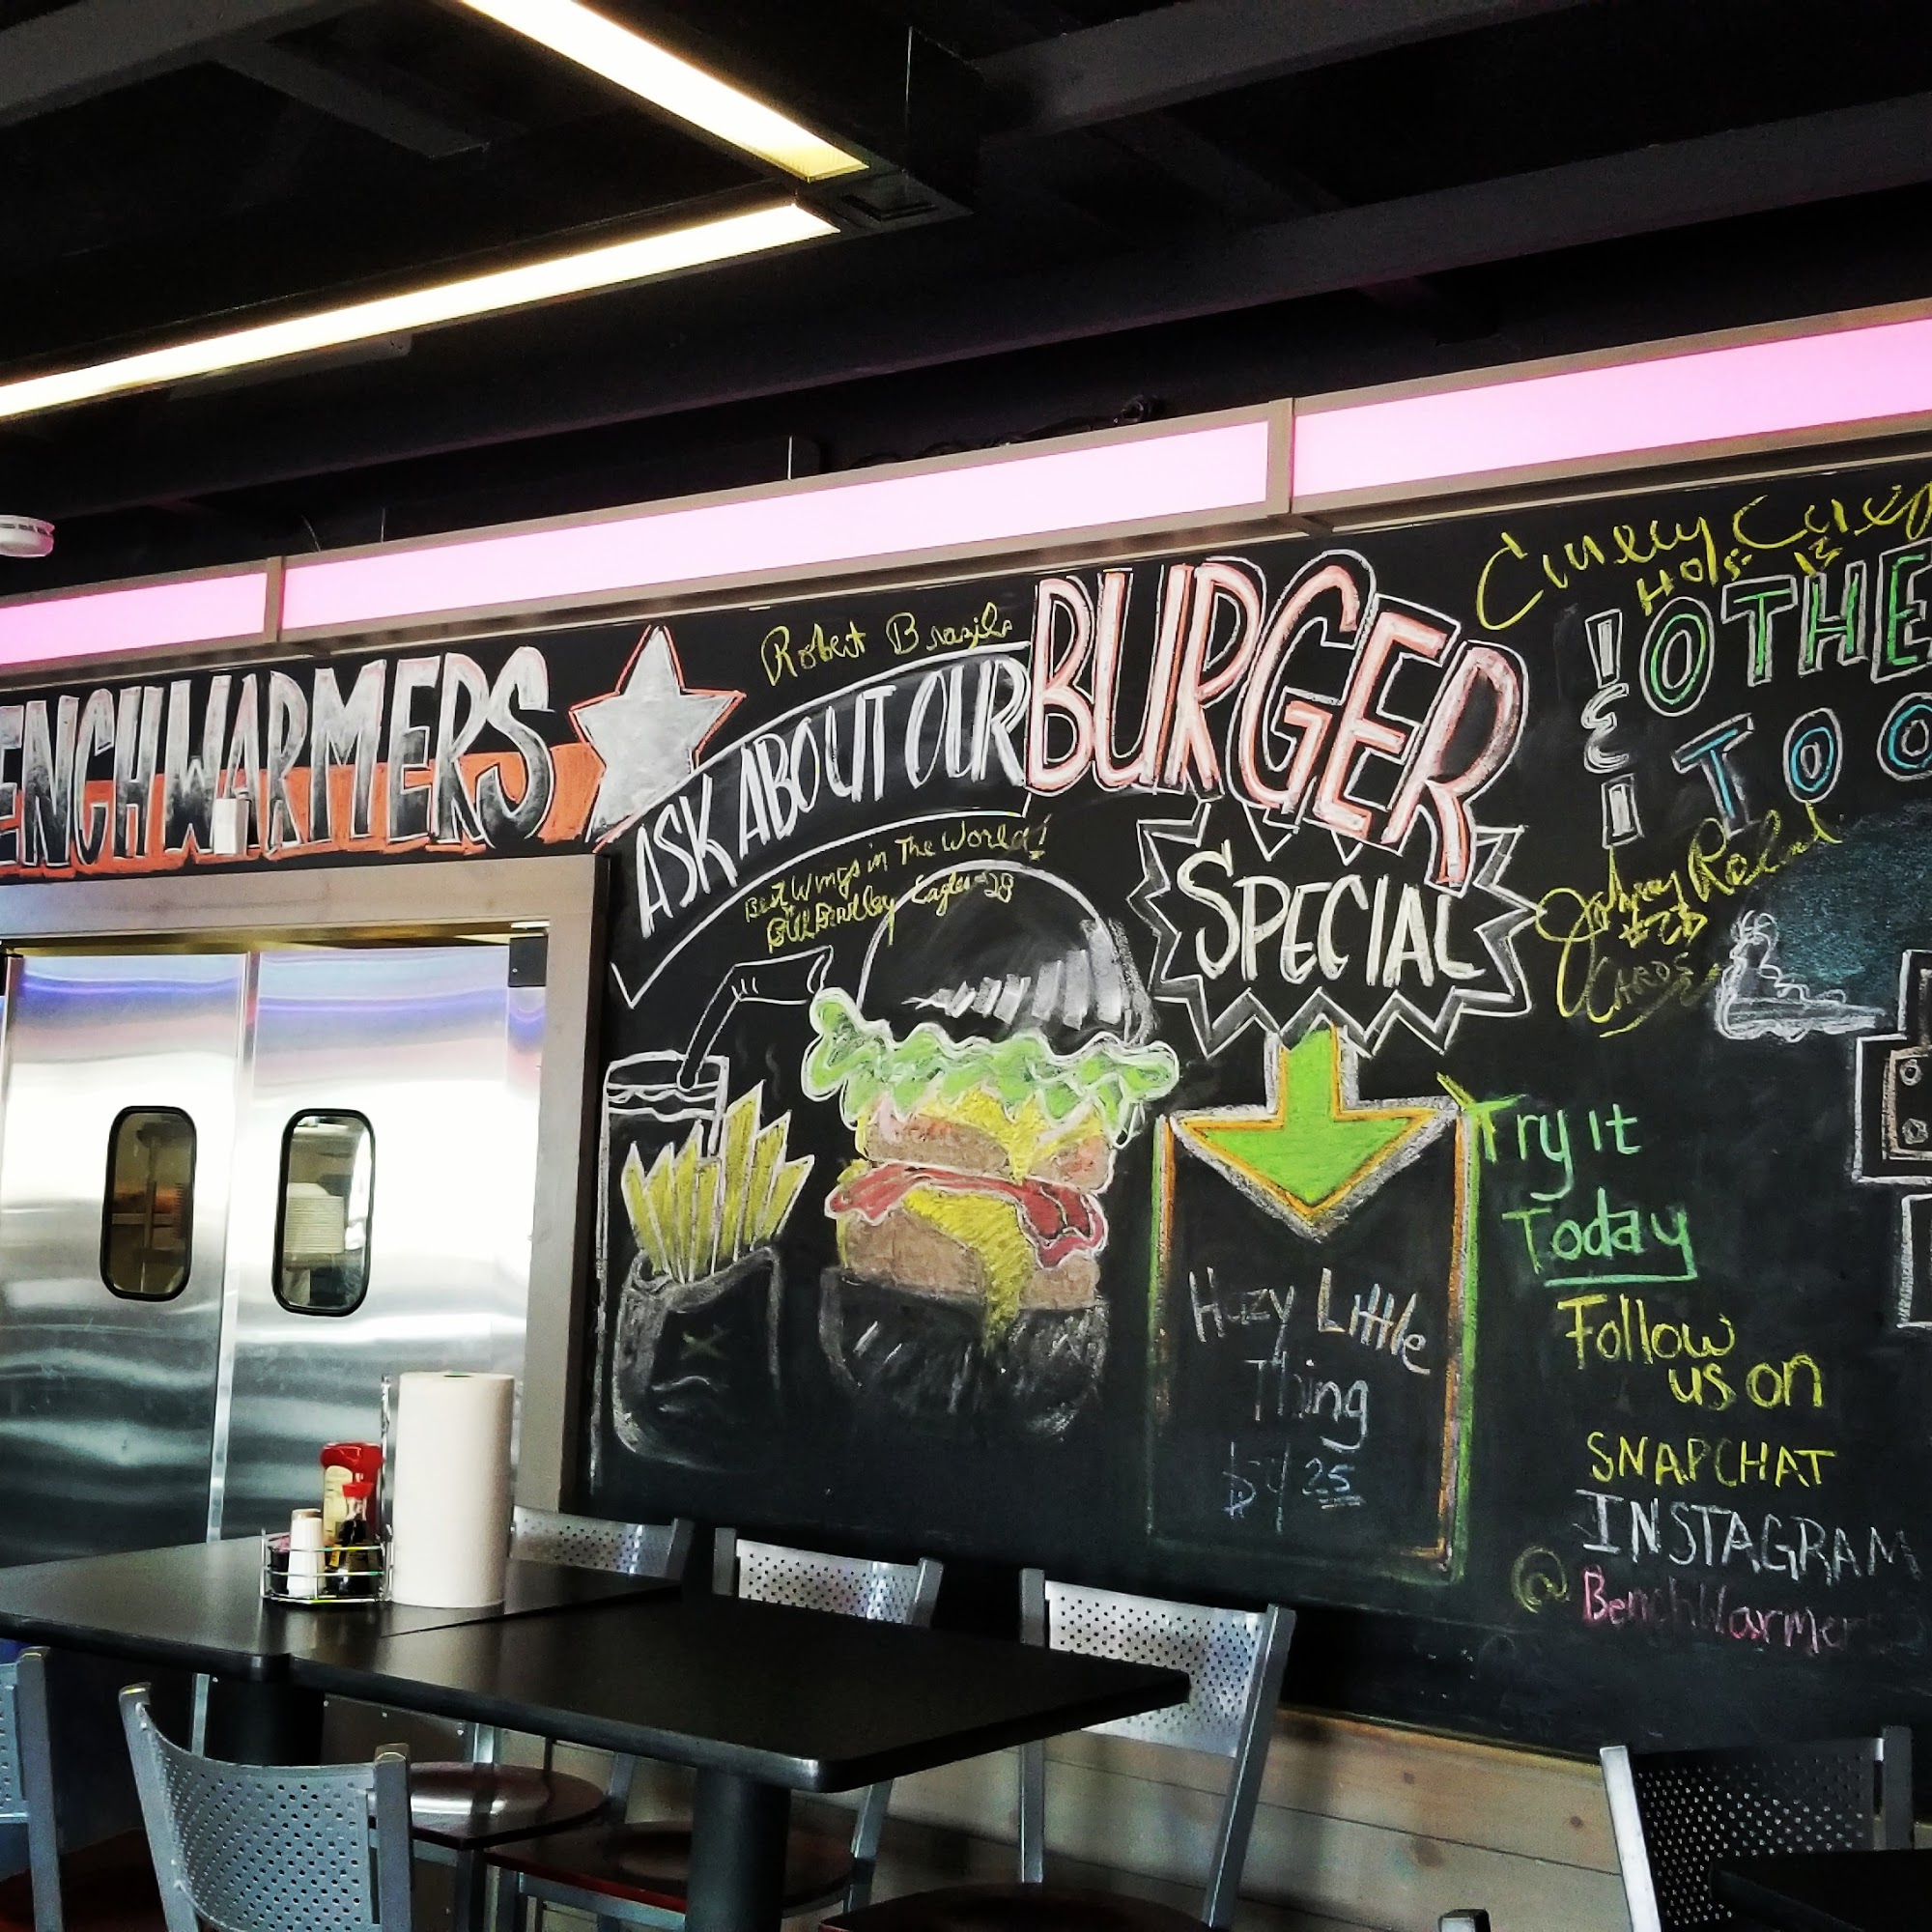 ENCHWARMERS
Robert Brazile
ASK ABOUT OUR
BURGER
SPECIAL
Best Wings in The World!
Bill Bradley Eagles 28
Huzy Little
Thing
25
HOF
OTHE
TOO
CARDS
Try It
Today
Follow
us on
SNAPCHAT
INSTAGRAM
@BenchWarmers